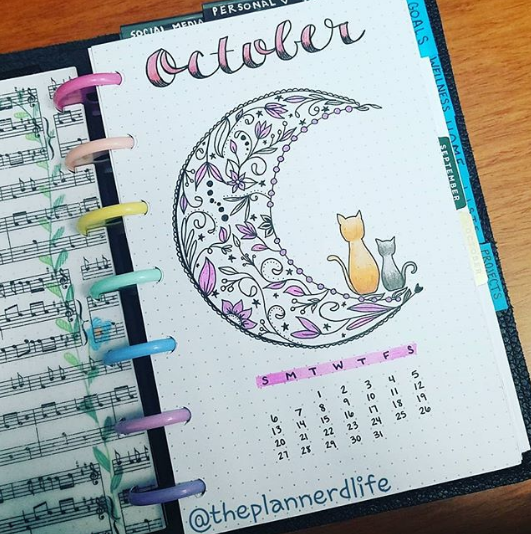 PERSONAL
SOCIAL MEDIA
October
GOALS
WELLNESS
HOME
SEPTEMBER
PROJECTS
S M T W T F S
1 2 3 4 5
6 7 8 9 10 11 12
13 14 15 16 17 18 19
20 21 22 23 24 25 26
27 28 29 30 31
@theplannerdlife